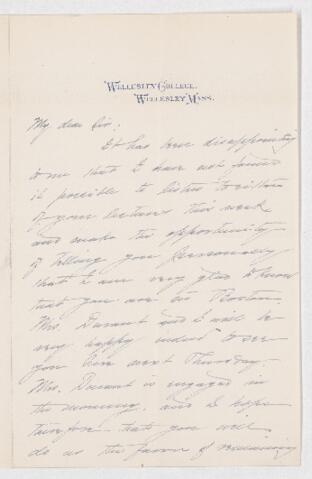 Wellesley College,
Wellesley Mass.
My dear Sir:
It has been disappointing
to me that I have not found
it possible to listen to either
of your lectures this week
and make the opportunity
of telling you personally
that I am very glad to know
that you are in Boston.
Mrs. Durant and I will be
very happy indeed to see
you here next Thursday.
Mrs. Durant is engaged in
the morning, and I hope
therefore that you will
do us the favor of remaining